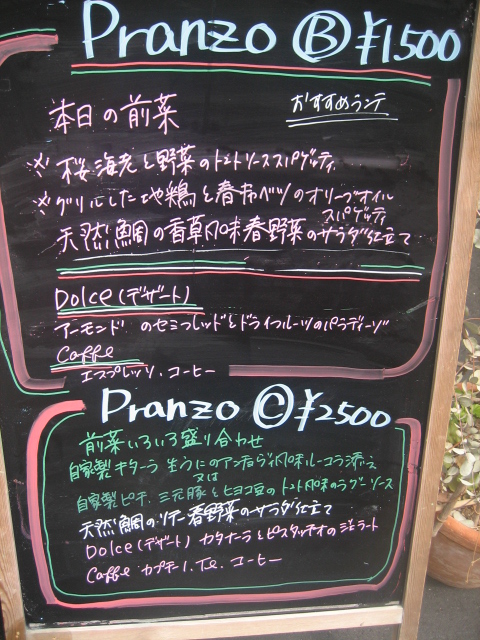 Pranzo Ⓑ ¥1500
本日の前菜 おすすめランチ
※桜海老と野菜のトマトソーススパゲッティ
※グリルした地鶏と春キャベツのオリーブオイル
スパゲッティ
天然鯛の香草風味春野菜のサラダ仕立て
Dolce (デザート)
アーモンドのセミフレッドとドライフルーツのパラディーゾ
Caffe
エスプレッソ・コーヒー
Pranzo Ⓒ ¥2500
前菜いろいろ盛り合わせ
自家製キターラ 生うにのアンチョビ風味ルーコラ添え
又は
自家製ピチ 三元豚とヒヨコ豆のトマト風味のラグーソース
天然鯛のソテー春野菜のサラダ仕立て
Dolce (デザート) カタラーナとピスタッチオのジェラート
Caffe カプチーノ. Te. コーヒー